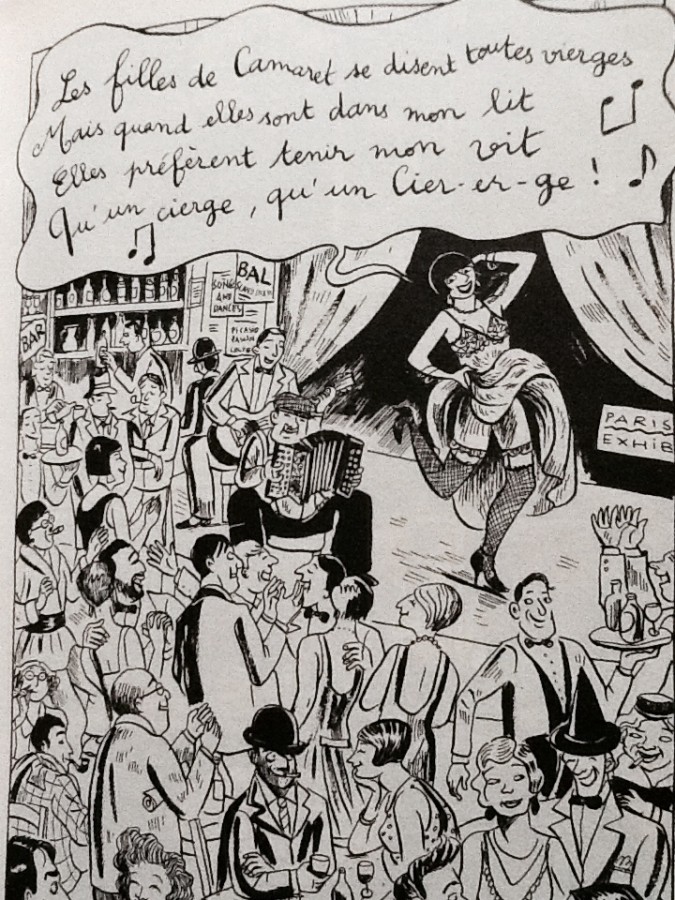 Les filles de Camaret se disent toutes vierges
Mais quand elles sont dans mon lit
Elles préfèrent tenir mon vit
Qu'un cierge, qu'un Cier-er-ge !
BAL
SONGS
AND
DANCES
PICASSO
PASCIN
BAR
PARIS
EXHIB